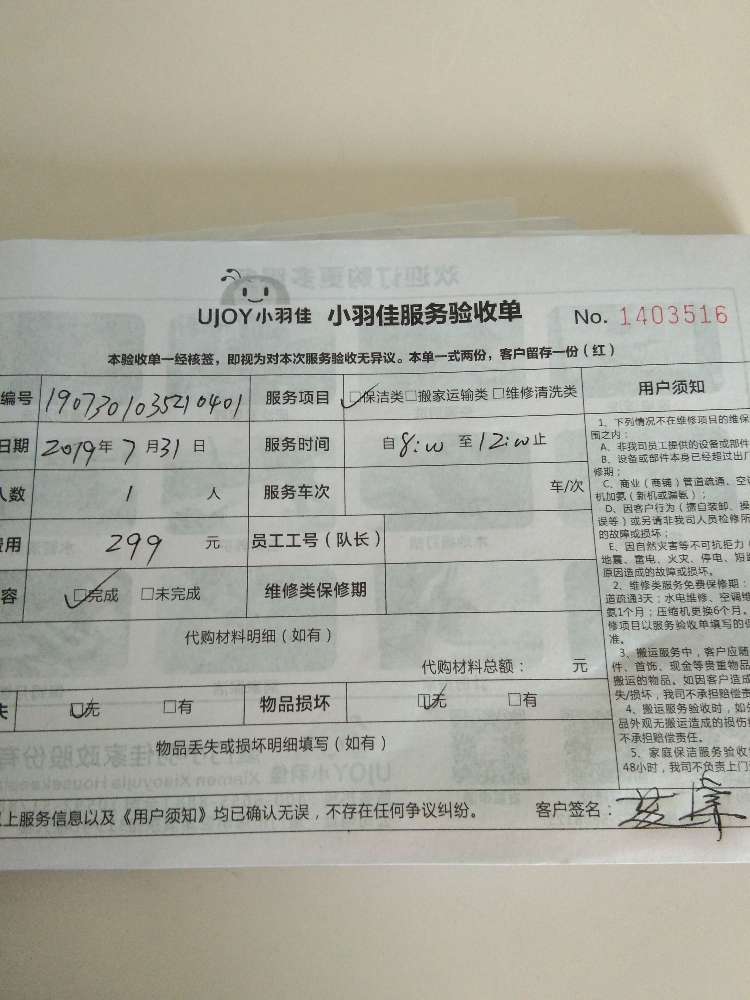 UJOY小羽佳 小羽佳服务验收单 No. 1403516
本验收单一经核签，即视为对本次服务验收无异议。本单一式两份，客户留存一份（红）
编号 1907301035210401 服务项目 □保洁类□搬家运输类□维修清洗类 用户须知
日期 2019年7月31日 服务时间 自8:00至12:00止
人数 1 人 服务车次 车/次
费用 299 元 员工工号（队长）
容 □完成 □未完成 维修类保修期
代购材料明细（如有）
代购材料总额： 元
失 □无 □有 物品损坏 □无 □有
物品丢失或损坏明细填写（如有）
上服务信息以及《用户须知》均已确认无误，不存在任何争议纠纷。 客户签名：
1、下列情况不在维修项目的维保
围之内：
A、非我司员工提供的设备或部件
B、设备或部件本身已经超过出厂
修期；
C、商业（商铺）管道疏通、空
机加氨（新机或漏氨）；
D、因客户行为（擅自装卸、操
误等）或另请非我司人员检修所
的故障或损坏；
E、因自然灾害等不可抗拒力（
地震、雷电、火灾、停电、短
原因造成的故障或损坏。
2、维修类服务免费保修期：
道疏通3天；水电维修、空调维
氨1个月；压缩机更换6个月。
修项目以服务验收单填写的
准。
3、搬运服务中，客户应随
件、首饰、现金等贵重物品
搬运的物品。如因客户造成
失/损坏，我司不承担赔偿责
4、搬运服务验收时，如
品外观无搬运造成的损伤
不承担赔偿责任。
5、家庭保洁服务验收
48小时，我司不负责上门